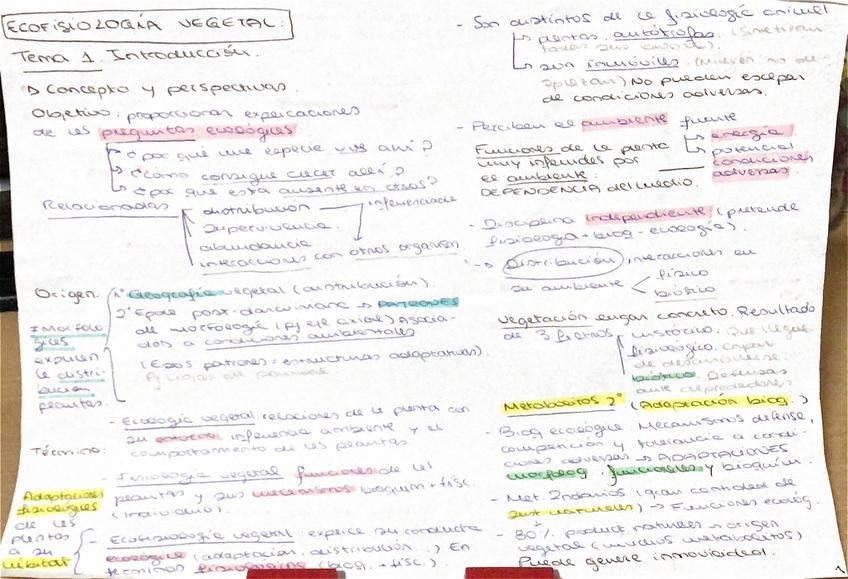 ECOFISIOLOGÍA VEGETAL:
Tema 1. Introducción.
Concepto y perspectivas.
Objetivo: proporcionar explicaciones
de las preguntas ecológicas
¿por qué una especie vive allí?
¿cómo consigue crecer allí?
¿por que esta ausente en otros?
Relacionadas distribución
supervivencia
abundancia
interacciones con otros organism.
Origen. 1º Geografía vegetal (distribución).
2º Epoca post-darwiniana → PATRONES
de morfología (Pj eje axial) Asocia-
dos a condiciones ambientales
(Esos patrones = estructuras adaptativas).
Morfolo
gías
explican
la distri-
bución
plantas.
- Ecología vegetal relaciones de la planta con
su entorno, influencia ambiente y el
comportamiento de las plantas.
Término:
- Fisiología vegetal funciones de las
plantas y sus mecanismos bioquím + físic.
(individuo).
- Ecofisiología vegetal: explica su conducta
ecológica (adaptación, distribución..) En
términos fisiológicos (bioq. + físic.)
Adaptaciones
fisiológicas
de las
plantas
a su
hábitat
- Son distintos de la fisiología animal
plantas autótrofas
son inmóviles (Mueven no de-
splazan) No pueden escapar
de condiciones adversas.
- Perciben el ambiente fuente
energía
potencial
condiciones
adversas
Funciones de la planta
muy influidas por
el ambiente:
DEPENDENCIA del medio.
- Disciplina independiente (pretende
fisiología + bioq - ecología).
Distribución, interacciones en
su ambiente físico
biótico
Vegetación en lugar concreto. Resultado
de 3 filtros histórico. Que llegue
fisiológico. Capaz
de desarrollarse
biótico Defensas
ante depredadores
Metabolitos 2º (Adaptación bioq.)
- Bioq ecológica. Mecanismos defensa,
competición y tolerancia a condi-
ciones adversas → ADAPTACIONES
morfológ, funcionales y bioquím.
- Met. 2ndarios (gran cantidad de
sust naturales) → Funciones ecológ.
- 80% product naturales → origen
vegetal (muchos metabolitos)
Puede generar inmovilidad.
1